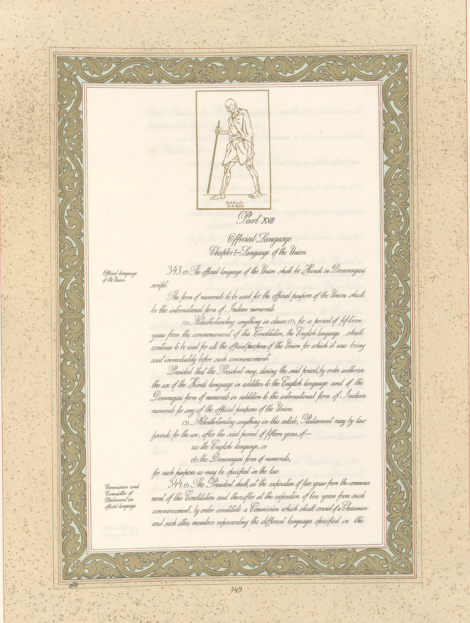 BAPUJI
Part XVII
Official Language
Chapter I—Language of the Union
Official language
of the Union.
343. (1) The official language of the Union shall be Hindi in Devanagari
script.
The form of numerals to be used for the official purposes of the Union shall
be the international form of Indian numerals.
(2) Notwithstanding anything in clause (1), for a period of fifteen
years from the commencement of this Constitution, the English language shall
continue to be used for all the official purposes of the Union for which it was being
used immediately before such commencement:
Provided that the President may, during the said period, by order authorise
the use of the Hindi language in addition to the English language and of the
Devanagari form of numerals in addition to the international form of Indian
numerals for any of the official purposes of the Union.
(3) Notwithstanding anything in this article, Parliament may by law
provide for the use, after the said period of fifteen years, of—
(a) the English language, or
(b) the Devanagari form of numerals,
for such purposes as may be specified in the law.
Commission and
Committee of
Parliament on
official language.
344. (1) The President shall, at the expiration of five years from the commence
ment of this Constitution and thereafter at the expiration of ten years from such
commencement, by order constitute a Commission which shall consist of a Chairman
and such other members representing the different languages specified in the
149